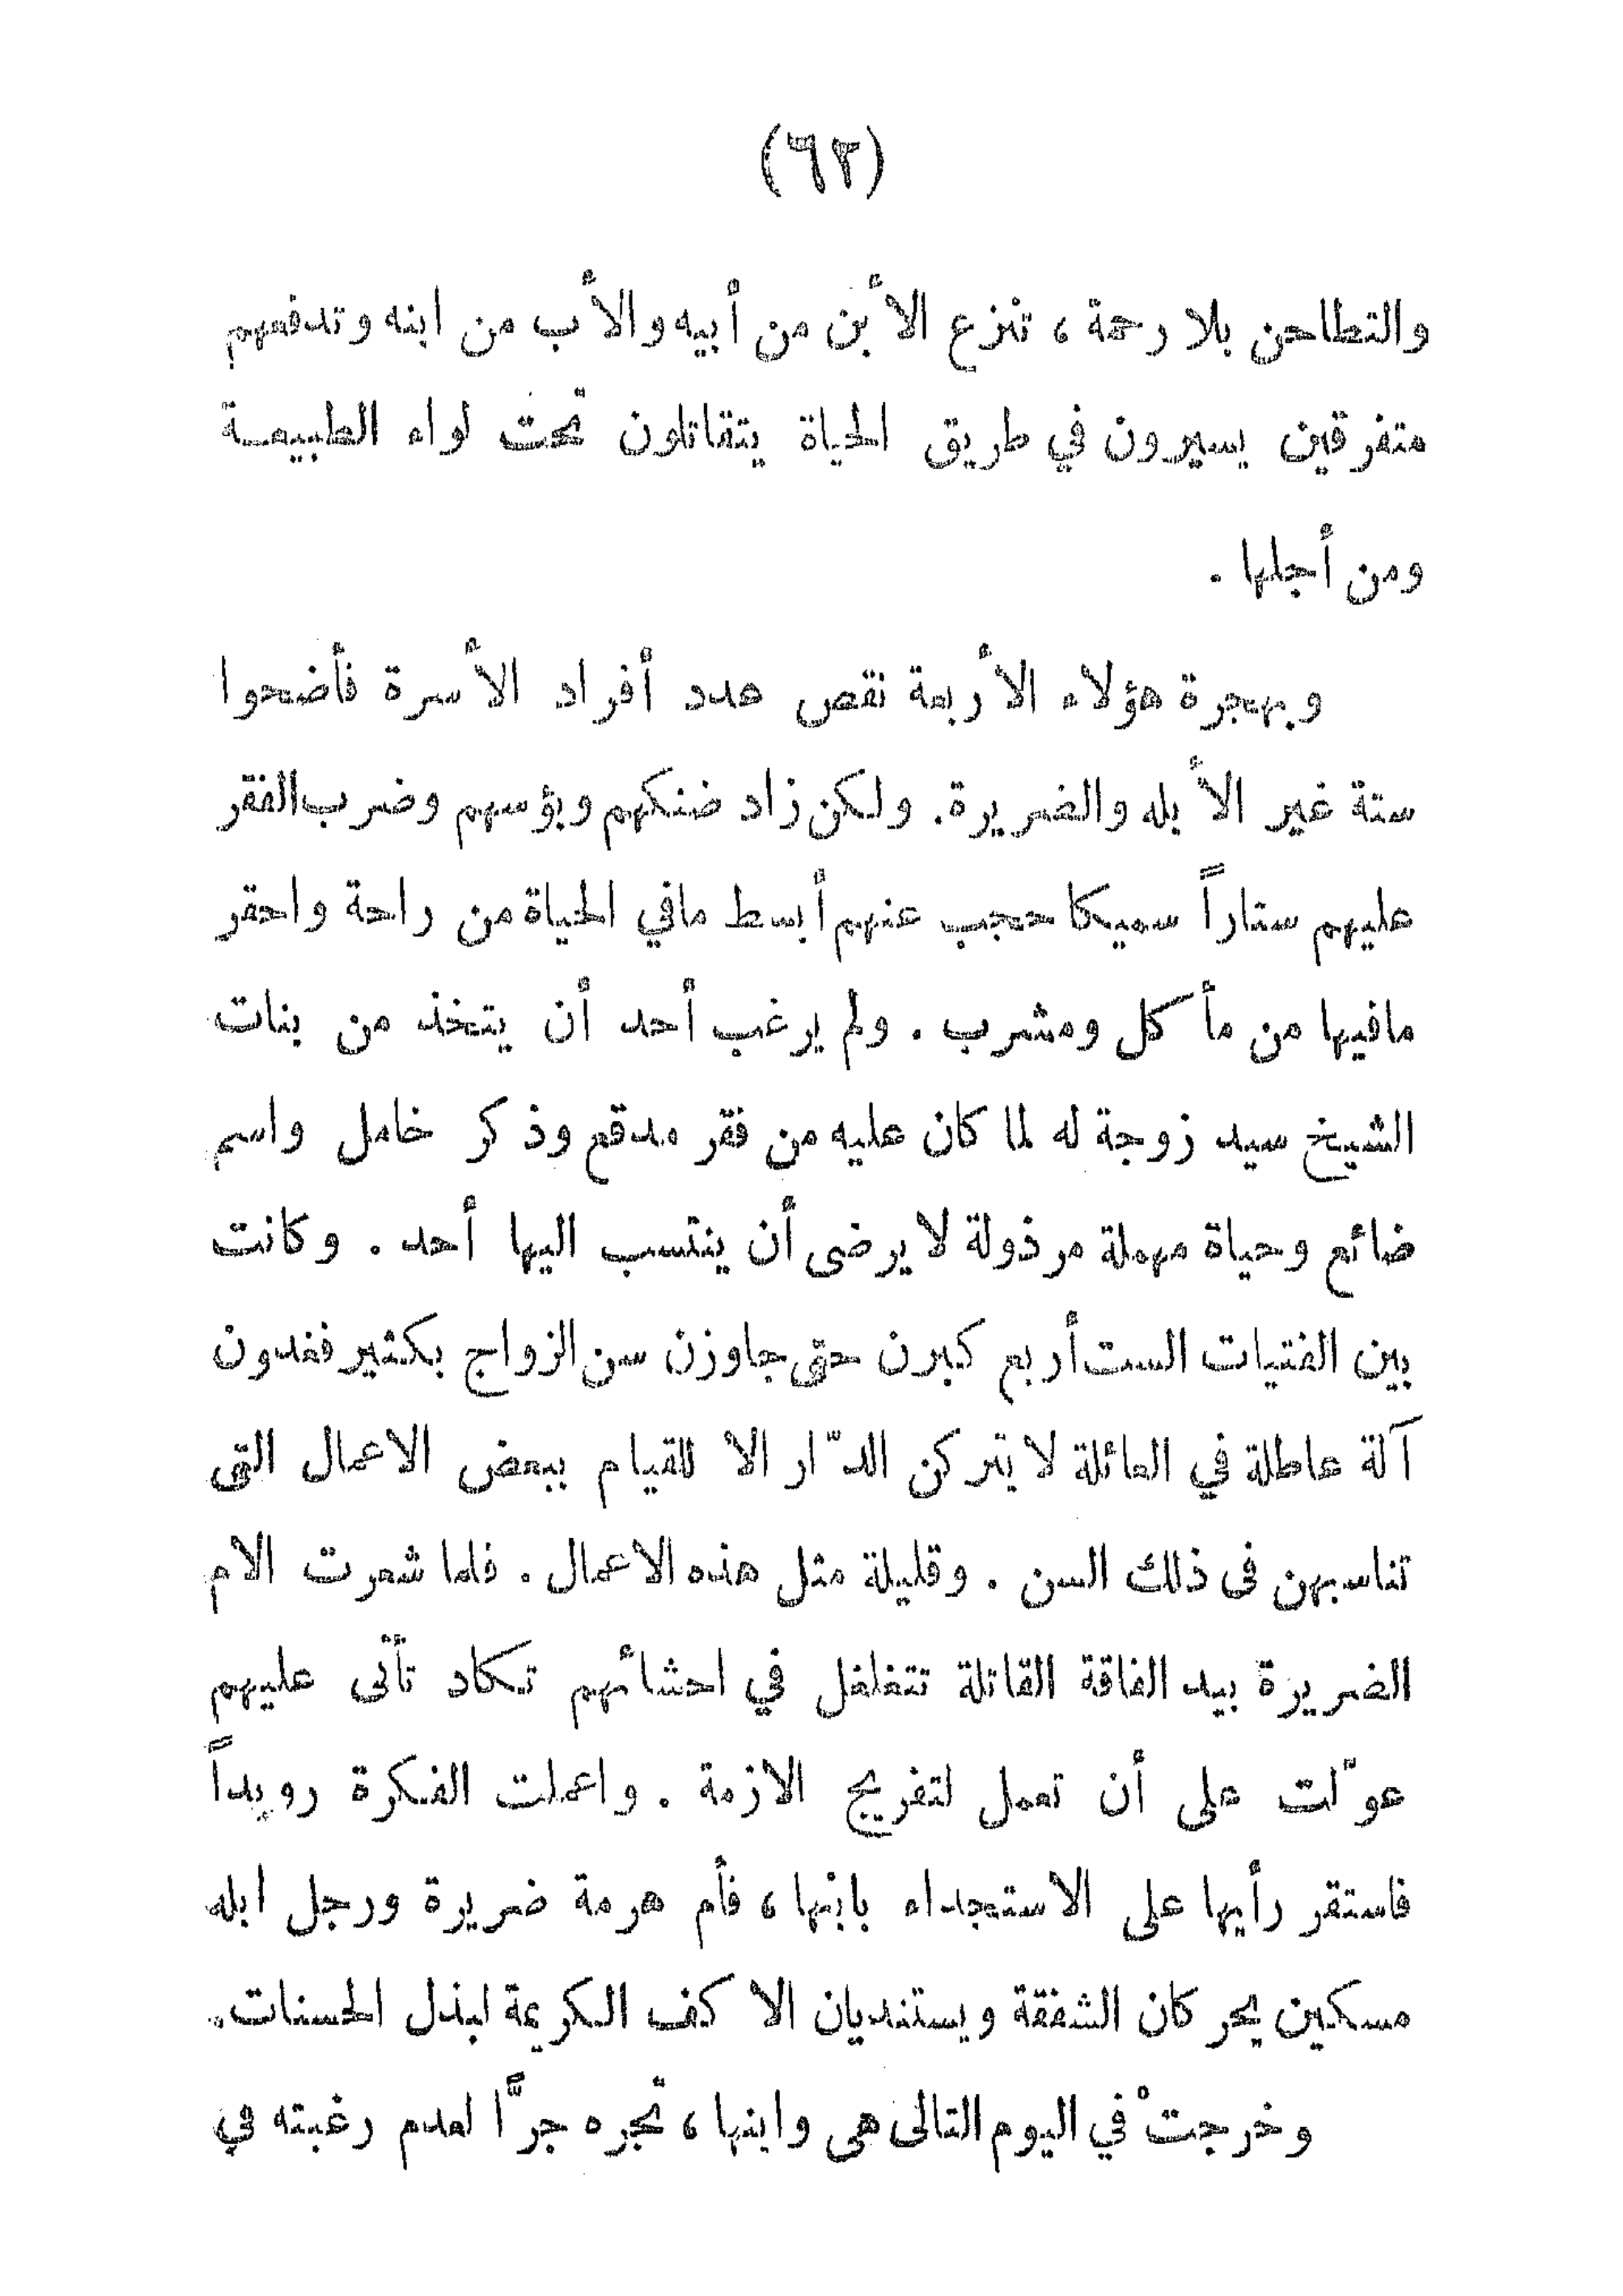 (٦٢)
والتطاحن بلا رحمة ، تنزع الأبن من أبيه والأب من ابنه وتدفعهم
متفرقين يسيرون في طريق الحياة يتقاتلون تحت لواء الطبيعة
ومن أجلها .
وبهجرة هؤلاء الأربعة نقص عدد أفراد الأسرة فأضحوا
ستة غير الأبله والضريرة . ولكن زاد ضنكهم وبؤسهم وضرب الفقر
عليهم ستاراً سميكا حجب عنهم أبسط مافي الحياة من راحة واحقر
مافيها من مأكل ومشرب . ولم يرغب أحد أن يتخذ من بنات
الشيخ سيد زوجة له لما كان عليه من فقر مدقع وذكر خامل واسم
ضائع وحياة مهملة مرذولة لا يرضى أن ينتسب اليها أحد . وكانت
بين الفتيات الست أربع كبرن حتى جاوزن سن الزواج بكثير فغدون
آلة عاطلة في العائلة لا يتركن الدّار الا للقيام ببعض الاعمال التى
تناسبهن فى ذلك السن . وقليلة مثل هذه الاعمال . فلما شعرت الام
الضريرة بيد الفاقة القاتلة تتغلغل في احشائهم تكاد تأتى عليهم
عوّلت على أن تعمل لتفريج الازمة . واعملت الفكرة رويداً
فاستقر رأيها على الاستجداء بابنها ، فأم هرمة ضريرة ورجل ابله
مسكين يحركان الشفقة ويستنديان الاكف الكريمة لبذل الحسنات .
وخرجتْ في اليوم التالى هى وابنها ، تجره جرًّا لعدم رغبته في